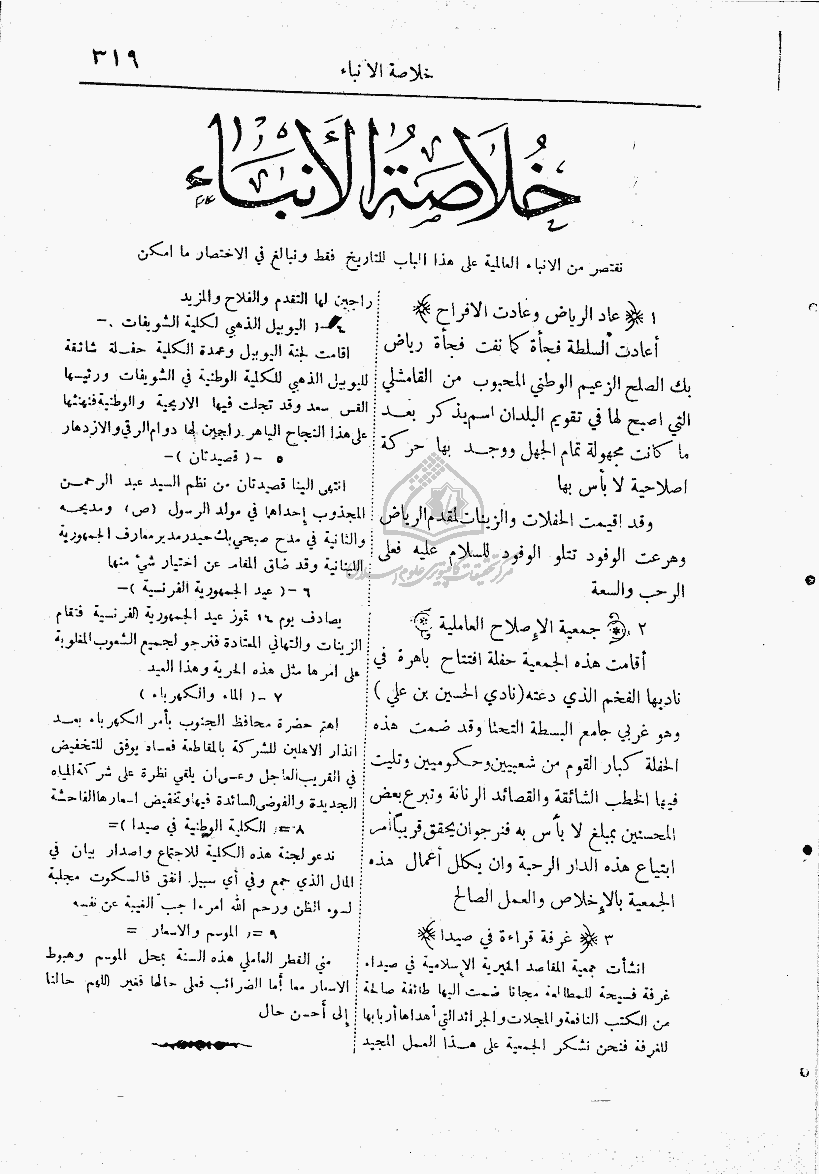 ٣١٩
خلاصة الأنباء
خُلَاصَةُ الأَنْبَاءِ
نقتصر من الانباء العالمية على هذا الباب للتاريخ فقط ونبالغ في الاختصار ما امكن
١ ﴿ عاد الرياض وعادت الافراح ﴾
أعادت السلطة فجأة كما نفت فجأة رياض
بك الصلح الزعيم الوطني المحبوب من القامشلي
التي اصبح لها في تقويم البلدان اسم يذكر بعد
ما كانت مجهولة تمام الجهل ووجد بها حركة
اصلاحية لا بأس بها
وقد اقيمت الحفلات والزينات لمقدم الرياض
وهرعت الوفود تتلو الوفود للسلام عليه فعلى
الرحب والسعة
٢ ﴿ جمعية الإصلاح العاملية ﴾
أقامت هذه الجمعية حفلة افتتاح باهرة في
ناديها الفخم الذي دعته (نادي الحسين بن علي)
وهو غربي جامع البسطة التحتا وقد ضمت هذه
الحفلة كبار القوم من شعبيين وحكوميين وتليت
فيها الخطب الشائقة والقصائد الرنانة وتبرع بعض
المحسنين بمبلغ لا بأس به فنرجو ان يحقق قريباً أمر
ابتياع هذه الدار الرحبة وان يكلل أعمال هذه
الجمعية بالإخلاص والعمل الصالح
٣ ﴿ غرفة قراءة في صيدا ﴾
انشأت جمعية المقاصد الخيرية الإسلامية في صيداء
غرفة فسيحة للمطالعة مجانا ضمت اليها طائفة صالحة
من الكتب النافعة والمجلات والجرائد التي أهداها أربابها
للغرفة فنحن نشكر الجمعية على هذا العمل المجيد
راجين لها التقدم والفلاح والمزيد
٤ -( اليوبيل الذهبي لكلية الشويفات )-
اقامت لجنة اليوبيل وعمدة الكلية حفلة شائقة
لليوبيل الذهبي للكلية الوطنية في الشويفات ورئيسها
القس سعد وقد تجلت فيها الاريحية والوطنية فنهنئها
على هذا النجاح الباهر راجين لها دوام الرقي والازدهار
٥ -( قصيدتان )-
انتهى الينا قصيدتان من نظم السيد عبد الرحمن
المجذوب إحداها في مولد الرسول (ص) ومديحه
والثانية في مدح صبحي بك حيدر مدير معارف الجمهورية
اللبنانية وقد ضاق المقام عن اختيار شيء منها
٦ -( عيد الجمهورية الفرنسية )-
يصادف يوم ١٤ تموز عيد الجمهورية الفرنسية فتقام
الزينات والتهاني المعتادة فنرجو لجميع الشعوب المغلوبة
على امرها مثل هذه الحرية وهذا العيد
٧ -( الماء والكهرباء )
اهتم حضرة محافظ الجنوب بأمر الكهرباء بعد
انذار الاهلين للشركة بالمقاطعة فعساه يوفق للتخفيض
في القريب العاجل وعسى ان يلقي نظرة على شركة المياه
الجديدة والفوضى السائدة فيها وتخفيض اسعارها الفاحشة
٨ =( الكلية الوطنية في صيدا )=
ندعو لجنة هذه الكلية للاجتماع واصدار بيان في
المال الذي جمع وفي أي سبيل انفق فالسكوت مجلبة
لسوء الظن ورحم الله امرءا جب الغيبة عن نفسه
٩ =( الموسم والاسعار =
مني القطر العاملي هذه السنة بمحل الموسم وهبوط
الاسعار معا أما الضرائب فعلى حالها فغير اللهم حالنا
إلى أحسن حال